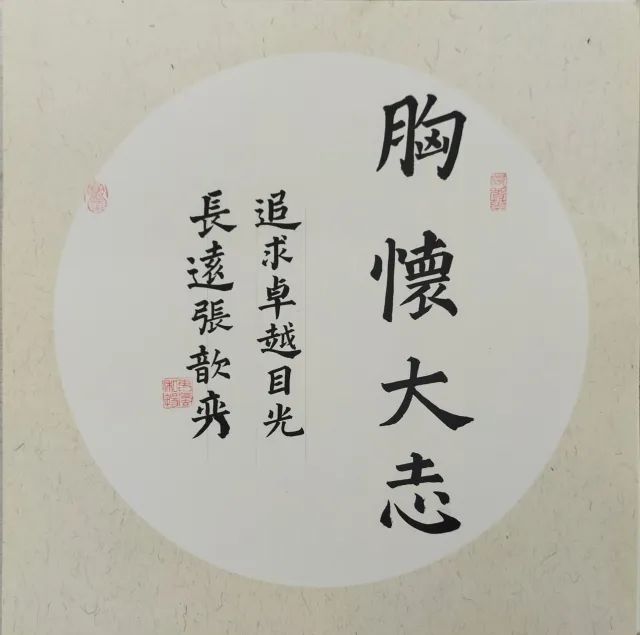 胸懷大志
追求卓越目光
長遠張歆